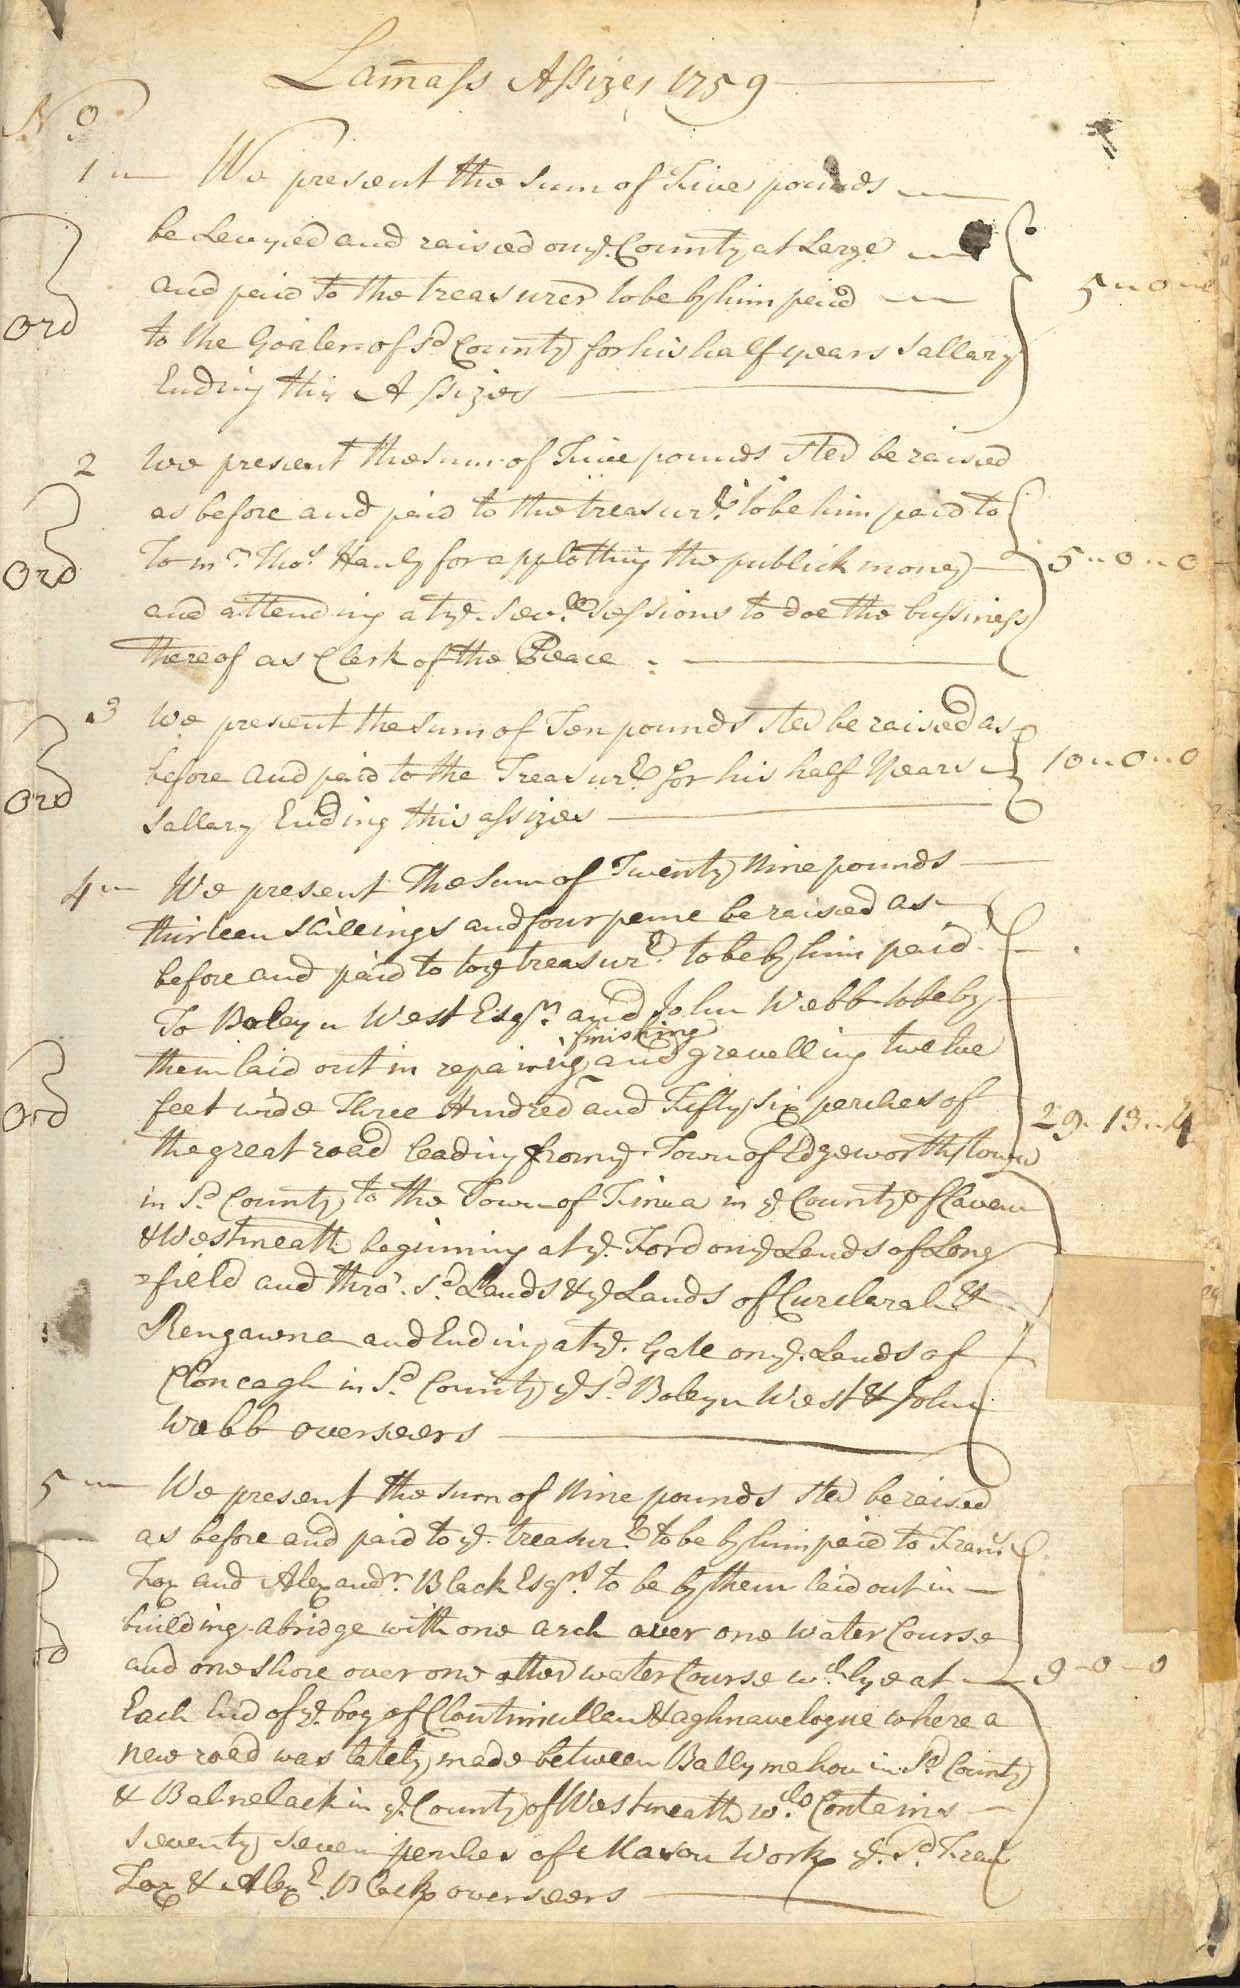 Lam̄ass Assizes 1759
No
1 We present the sum of Five pounds
be Levyed and raised on ye. County at Large
and paid to the treasurer to be by him paid
5 " 0 " 0
Ord
to the Goaler of sd County for his half years sallary
Ending this Assizes
2 We present the sum of Five pounds sterl be raised
as before and paid to the treasurr. to be him paid to
Ord
To mr. Thos. Hanly for applotting the publick money
5 " 0 " 0
and attending at ye. sevll. sessions to doe the bussiness
thereof as Clerk of the Peace
3 We present the sum of Ten pounds sterl be raised as
before and paid to the Treasurr. for his half Years
10 " 0 " 0
Ord
sallary Ending this assizes
4 We present The Sum of Twenty Nine pounds
thirteen shillings and four pence be raised as
before and paid to to ye treasurr. to be by him paid
To Boleyn West Esqr. and John Webb to be by
finishing
them laid out in repairing and gravelling twelve
feet wide Three Hundred and Fifty six perches of
Ord
29 . 13 .. 4
the great road leading from ye. Town of Edgeworthstown
in Sd. County to the Town of Finea in ye County of Cavan
& Westmeath beginning at ye. Ford on ye Lands of Long
=field and thro'. sd. Lands & ye Lands of &
and Ending at ye. Gate on ye. Lands of
Cloncagh in Sd. County ye Sd. Boleyn West & John
Webb overseers
5 We present the sum of Nine pounds sterl be raised
as before and paid to ye. treasurr. to be by him paid to Frans
Fox and Alexandr. Black Esqrs. to be by them laid out in
building a bridge with one arch over one Water Course
Ord
and one shore over one other water Course wch. lye at
9 - 0 - 0
Each End of ye. bog of where a
new road was lately made between Ballymahon in Sd. County
& Balnelack in ye. County of Westmeath wch. Contains
seventy seven perches of Mason Work ye. Sd. Fran
Fox & Alexr. Black overseers